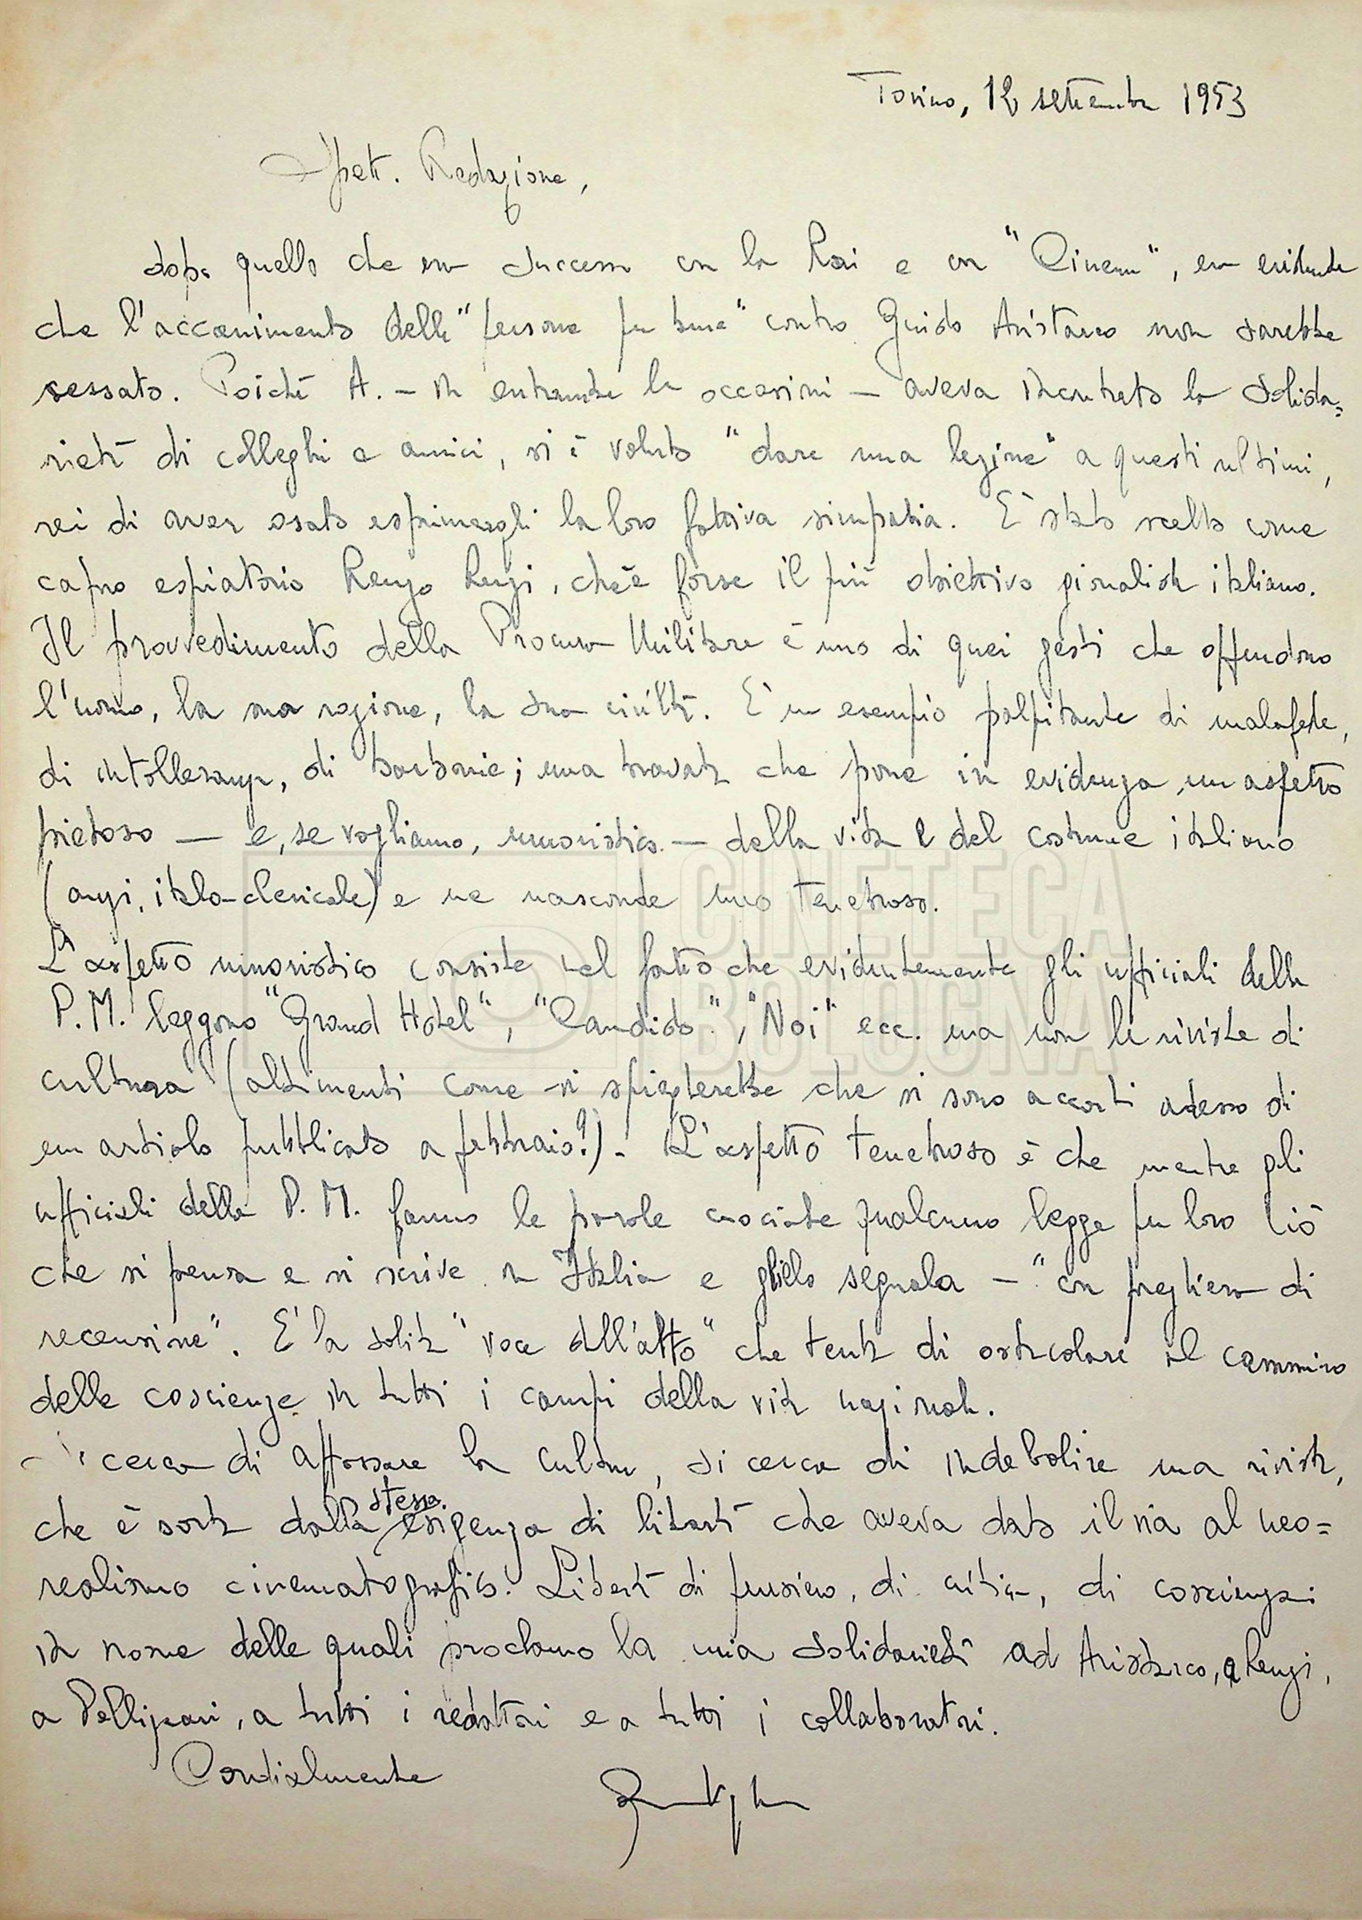 Torino, 12 settembre 1953
Spett. Redazione,
dopo quello che era successo con la Rai e con "Cinema", era evidente
che l'accanimento delle "persone per bene" contro Guido Aristarco non sarebbe
cessato. Poiché A. – in entrambe le occasioni – aveva incontrato la solida=
rietà di colleghi e amici, si è voluto "dare una lezione" a questi ultimi,
rei di aver osato esprimergli la loro fattiva simpatia. È stato scelto come
capro espiatorio Renzo Renzi, che è forse il più obiettivo giornalista italiano.
Il provvedimento della Procura Militare è uno di quei gesti che offendono
l'uomo, la sua ragione, la sua civiltà. È un esempio palpitante di malafede,
di intolleranza, di barbarie; una trovata che pone in evidenza un aspetto
pietoso – e, se vogliamo, umoristico – della vita e del costume italiano
(anzi, italo-clericale) e ne nasconde uno tenebroso.
L'aspetto umoristico consiste nel fatto che evidentemente gli ufficiali della
P.M. leggono "Grand Hotel", "Candido", "Noi" ecc. ma non le riviste di
cultura (altrimenti come si spiegherebbe che si sono accorti adesso di
un articolo pubblicato a febbraio?). L'aspetto tenebroso è che mentre gli
ufficiali della P.M. fanno le parole crociate qualcuno legge per loro ciò
che si pensa e si scrive in Italia e glielo segnala – "con preghiera di
recensione". È la solita "voce dall'alto" che tenta di ostacolare il cammino
delle coscienze in tutti i campi della vita nazionale.
Si cerca di affossare la cultura, si cerca di indebolire una rivista,
che è sorta dalla stessa esigenza di libertà che aveva dato il via al neo=
realismo cinematografico. Libertà di pensiero, di critica, di coscienza:
in nome delle quali proclamo la mia solidarietà ad Aristarco, a Renzi,
a Pellizzari, a tutti i redattori e a tutti i collaboratori.
Cordialmente